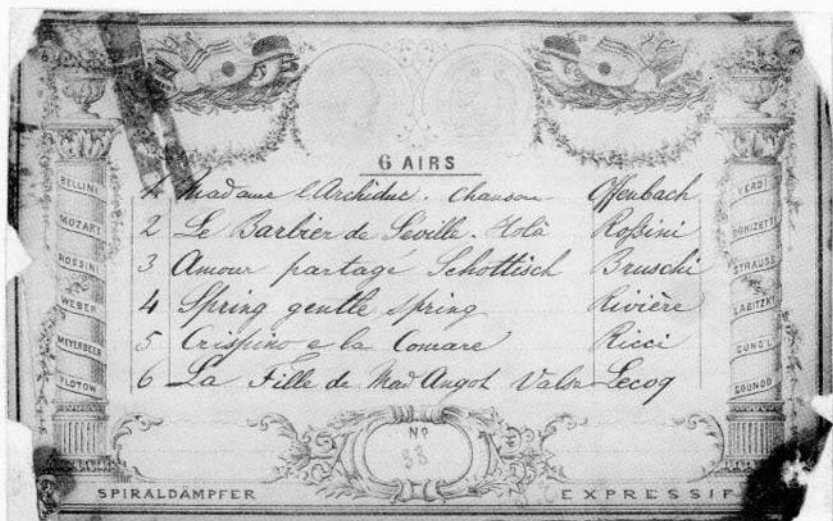 6 AIRS
1 Madame l'Archiduc. Chanson Offenbach
2 Le Barbier de Séville. Holà Roſsini
3 Amour partagé Schottisch Bruschi
4 Spring gentle spring Rivière
5 Crispino e la Comare Ricci
6 La Fille de Mad Angot Valse Lecoq
BELLINI
MOZART
ROSSINI
WEBER
MEYERBEER
FLOTOW
VERDI
DONIZETTI
STRAUSS
LABITZKY
GUNG'L
GOUNOD
Nº
88
SPIRALDÄMPFER EXPRESSIF